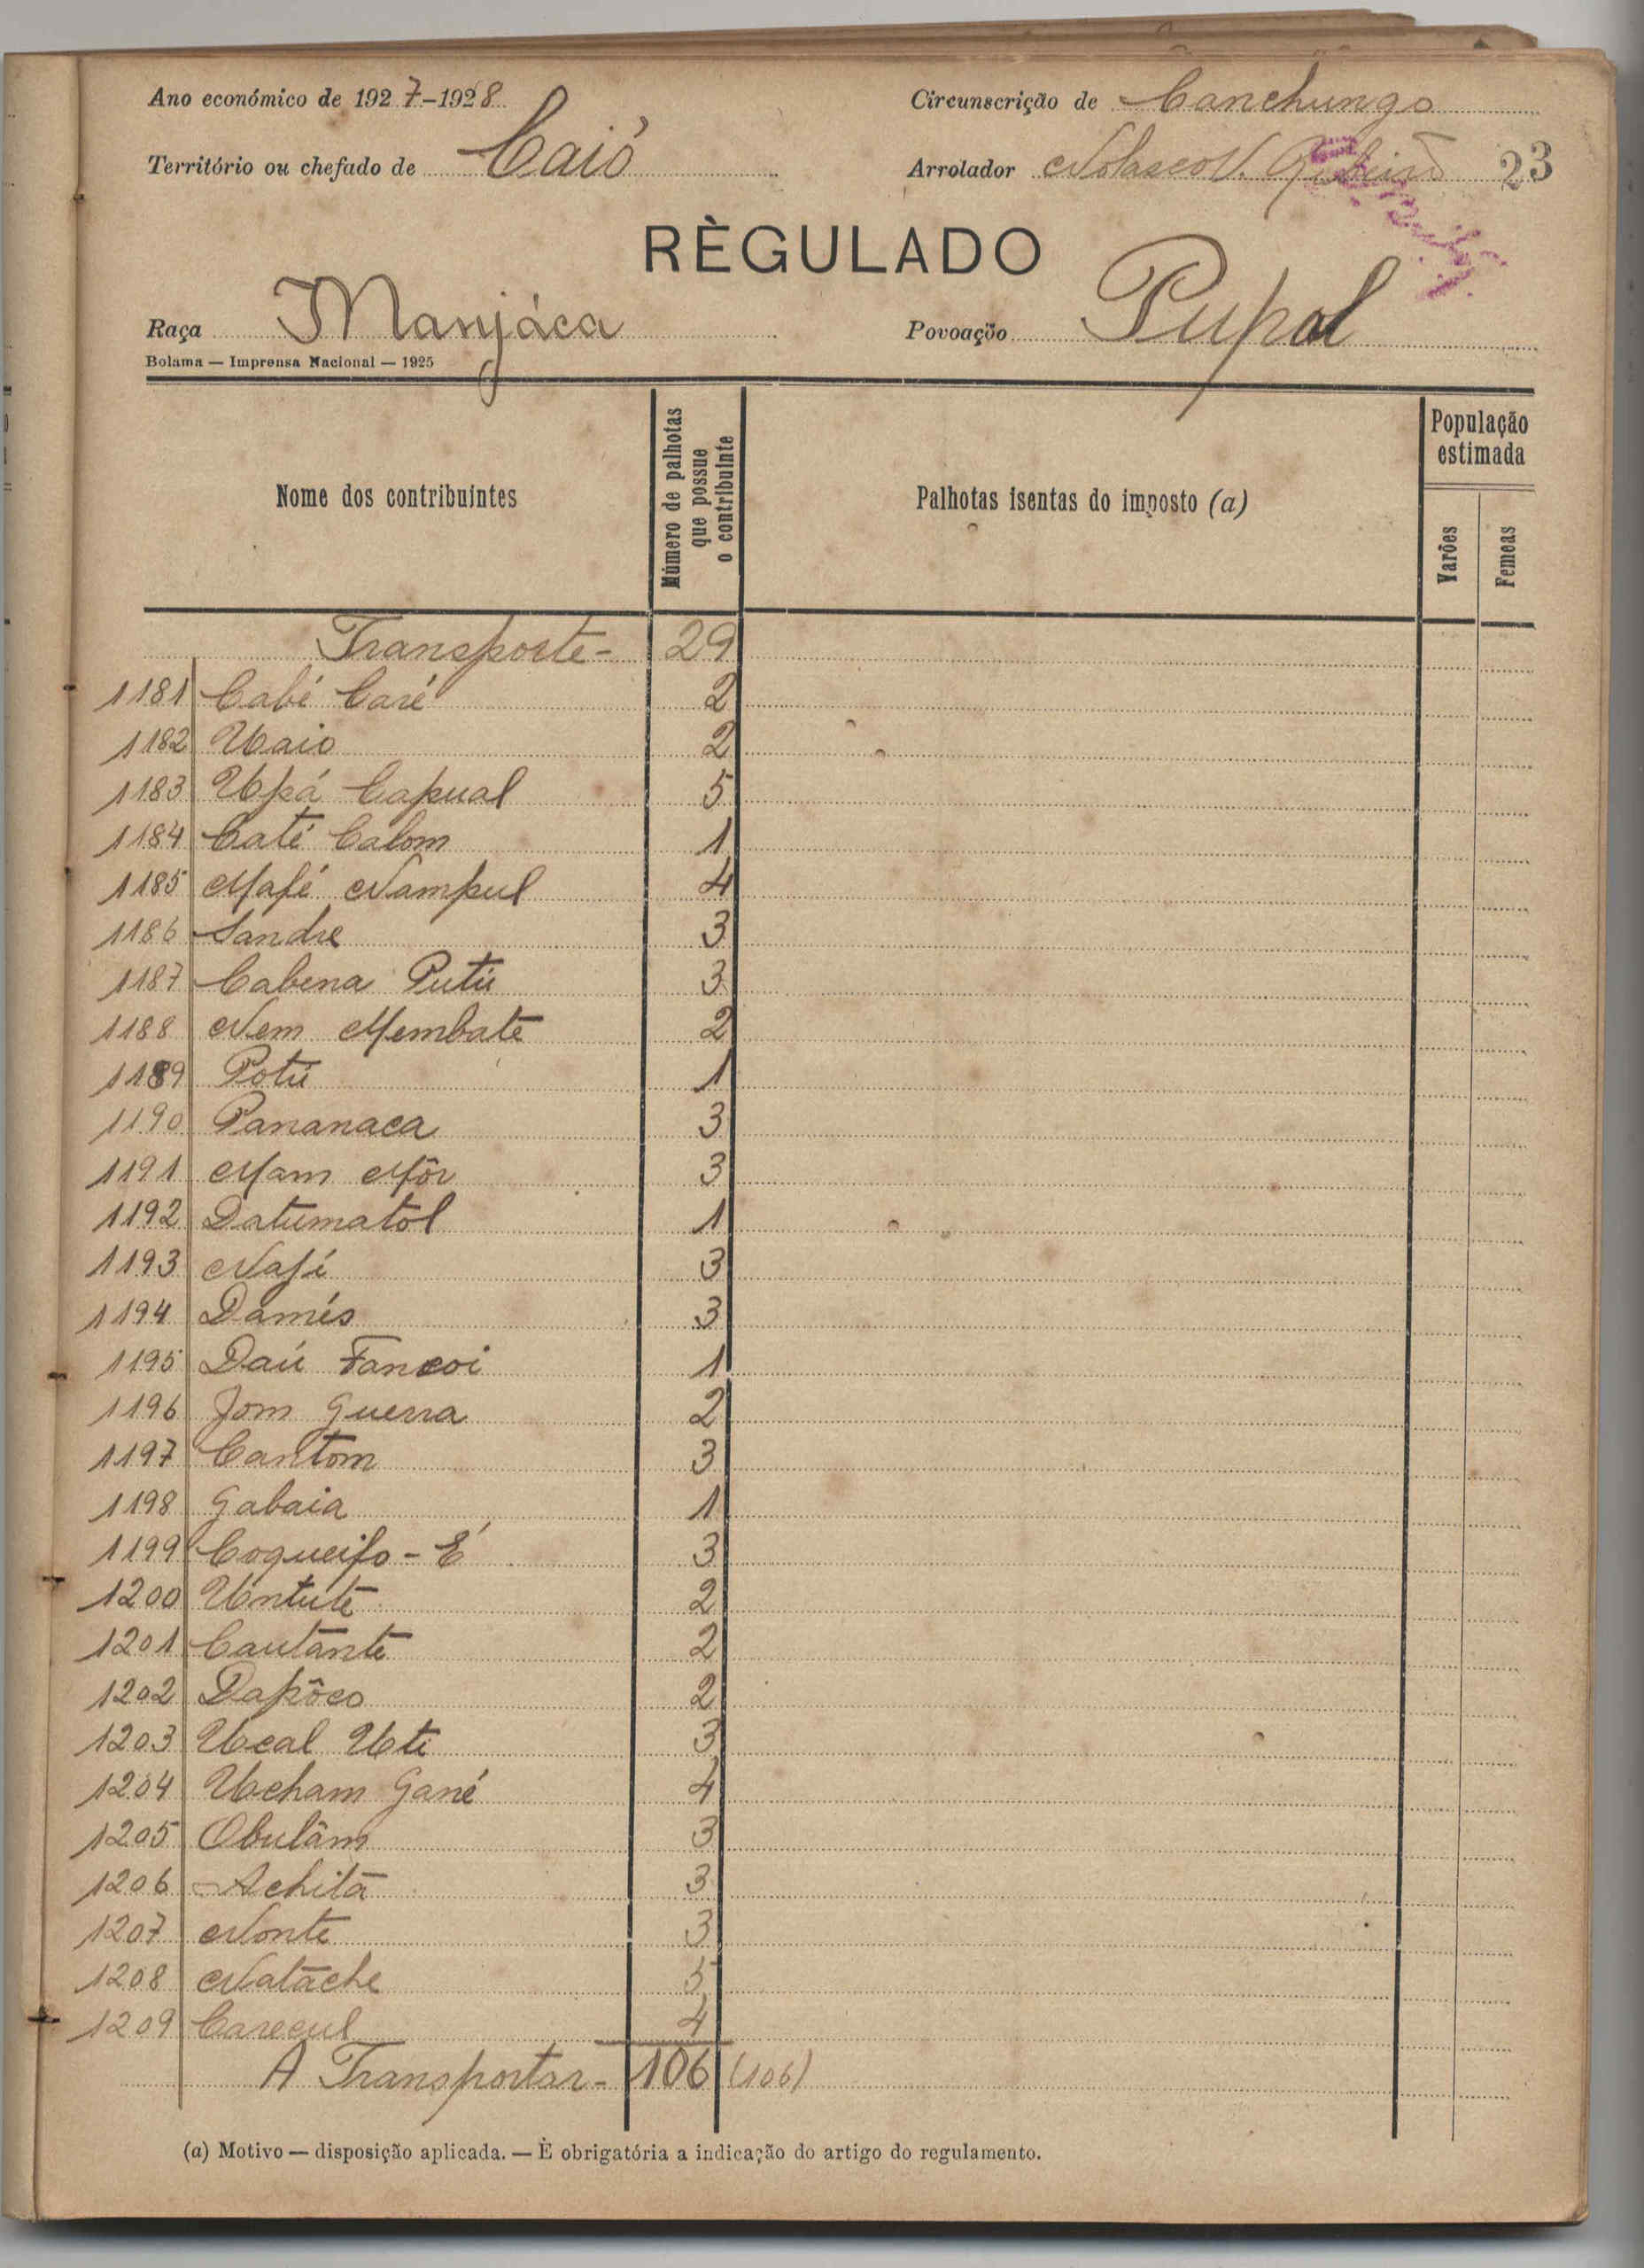 Ano económico de 1927-1928 Circunscrição de Canchungo
Território ou chefado de Caió Arrolador Nolasco V. 23
RÈGULADO
Raça Manjáca Povoação Pupal
Bolama — Imprensa Nacional — 1925
Nome dos contribuintes Número de palhotas que possue o contribuinte Palhotas isentas do imposto (a) População estimada Varões Femeas
Transporte- 29
1181 Cabi Caré 2
1182 Uaio 2
1183 Upá Capual 5
1184 Caté Calom 1
1185 Mafé Nampul 4
1186 Sandre 3
1187 Cabena Putú 3
1188 Nem Membate 2
1189 Potú 1
1190 Pananaca 3
1191 Mam Môr 3
1192 Datumatol 1
1193 Nafé 3
1194 Damés 3
1195 Daú Fancoi 1
1196 Jom Guerra 2
1197 Cantom 3
1198 Gabaia 1
1199 Coqueifo-É 3
1200 Untute 2
1201 Cautante 2
1202 Dapôco 2
1203 Ucal Uti 3
1204 Ucham Gané 4
1205 Obulâm 3
1206 Achita 3
1207 Nonte 3
1208 Natache 5
1209 Carecul 4
A Transportar- 106 (106)
(a) Motivo — disposição aplicada. — È obrigatória a indicação do artigo do regulamento.